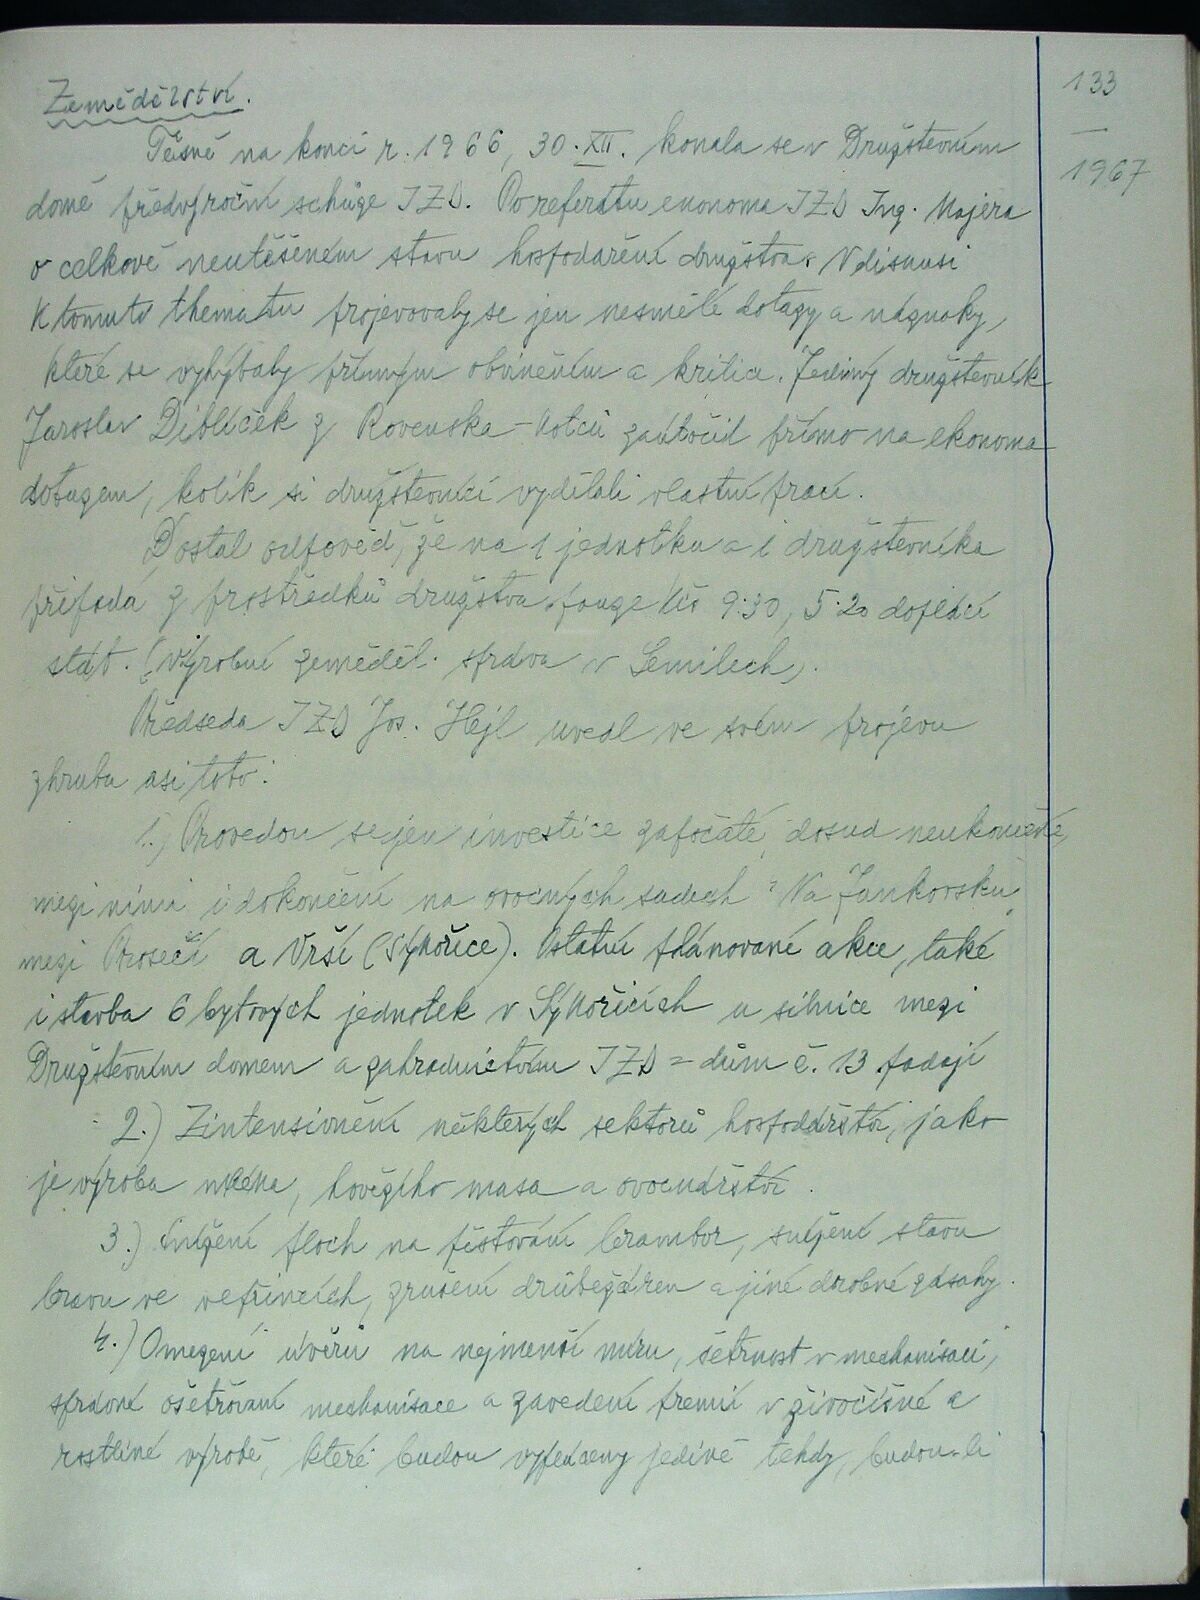 133
1967
Zemědělství.
Těsně na konci r. 1966, 30. XII. konala se v Družstevním
domě předvýroční schůze JZD. Po referátu ekonoma JZD Ing. Majera
o celkově neutěšeném stavu hospodaření družstva. V diskusi
k tomuto thematu projevovaly se jen nesmělé dotazy a náznaky,
které se vyhýbaly přímým obviněním a kritice. Jediný družstevník
Jaroslav Diblíček z Rovenska - zaútočil přímo na ekonoma
dotazem, kolik si družstevníci vydělali vlastní prací.
Dostal odpověď, že na 1 jednotku a 1 družstevníka
připadá z prostředků družstva pouze Kčs 9.30, 5.20 doplácí
stát. (Výrobní zeměděl. správa v Semilech).
Předseda JZD Jos. Hejl uvedl ve svém projevu
zhruba asi toto:
1.) Provedou se jen investice započaté, dosud neukončené,
mezi nimi i dokončení na ovocných sadech "Na Jankovsku"
mezi Prosečí a Vrší (Sýkořice). Ostatní plánované akce, také
i stavba 6 bytových jednotek v Sýkořicích u silnice mezi
Družstevním domem a zahradnictvím JZD = dům č. 13 padají
2.) Zintensivnění některých sektorů hospodářství, jako
je výroba mléka, hovězího masa a ovocnářství.
3.) Snížení ploch na pěstování brambor, snížení stavu
bravu ve vepřincích, zrušení drůbežáren a jiné drobné zásahy.
4.) Omezení úvěrů na nejmenší míru, šetrnost v mechanisaci,
správné ošetřování mechanisace a zavedení premií v živočišné a
rostliné výrobě, které budou vypláceny jedině tehdy, budou-li